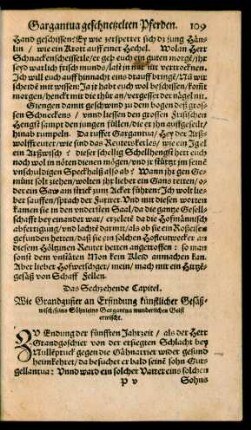 Gargantua geschnetzelten Pferden. 109
Hand geschissen: Ey wie zersperret sich di jung Häns-
lin / wie ein Krott auff einer Hechel. Wolan Herr
Schnackenscheisserle / er geb euch ein guten morgt / ihr
seyd warlich frisch mundo /
Ich will euch auff hinnacht eins drauff bringē / Nā wir
scheide mit wissen: Jaꝛt habe euch wol beschissen /
morgn / henckt mir die eh̄r an / vergesser der nägel nit.
Giengen damit geschwind zu dem bogen deß gros-
sen Schneckens / unnd liessen den grossen Frisischen
Hengst samp den jungen füllen / die er ihn auffgesetzt /
hinab rumpeln. Da ruffet Gargantua / Hey der Arß-
wolffreuter / wie sind das Reuterskerles / wie ein Igel
ein Arßwisch? dieser schellig Schellhengst herr euch
noch wol in nöten dienen mögen / und je stürtzt jm seinē
unschuldigen Speckhalß also ab? Wann ihr gen Ge-
münt solt ziehen / wolten jhr lieber ein Ganß reiten / od-
der ein Saw am strick zum Acker führen: Ich wolt lie-
ber sauffen / sprach der Furirer. Und mit diesen worten
kamen sie in den undertien Saal / da die gantze Gesell-
schafft bey einander war / erzelest da die Hoffmännisch
abfertigung / und lachte darum / als ob sie ein Roßeises
gefunden herten / daß sie ein solchen Hofteutwerker an
diesem Höltzinen Reuter hetten angetroffen: so man
sonst dem vnitäten Mon kein Kleid anmachen kan.
Aber lieber Hofwerschger / mein / mach mit ein Hützes-
gesäß von Schaff Fellen.
Das Sechzehende Capitel.
Wie Grandgusier an Erfindung künstlicher Gesäß-
wisch / seins Söhnleins Gargantua wunderlichen Geist
ermischt.
ZU Endung der fünfften Jahrzeit / als der Herr
Grandgoschier von der ersiegten Schlacht bey
Nullēpruck gegen die Gähnarrier wider gesund
heimkehret / da besucher er bald seinē sohn Gur-
gellantua: Unnd ward ein solcher Vatter eins solchen
P v Sohns